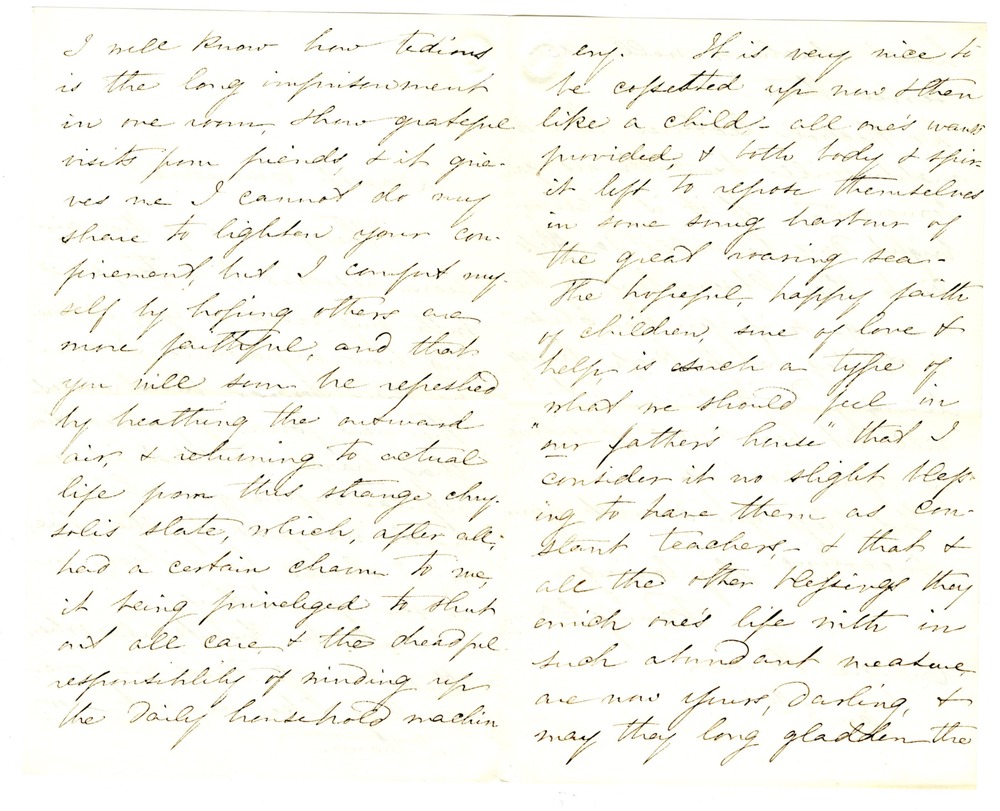 I well know how tedious
is the long imprisonment
in one room, & how grateful
visits from friends, & it grie-
ves me I cannot do my
share to lighten your con-
finement, but I comfort my-
self by hoping others are
more faithful, and that
you will soon be refreshed
by breathing the outward
air, & returning to actual
life from this strange chry-
solis state, which, after all,
had a certain charm to me,
it being priveleged to shut
out all care & the dreadful
responsibility of winding up
the daily household machin
ery. It is very nice to
be cossetted up now & then
like a child - all one's wants
provided, & both body & spir-
it left to repose themselves
in some snug harbour of
the great roaring sea -
The hopeful, happy faith
of children, sure of love &
help, is such a type of
what we should feel in
"our father's house" that I
consider it no slight bless-
ing to have them as con-
stant teachers, - & that &
all the other blessings they
enrich one's life with in
such abundant measure
are now yours, Darling, &
may they long gladden the